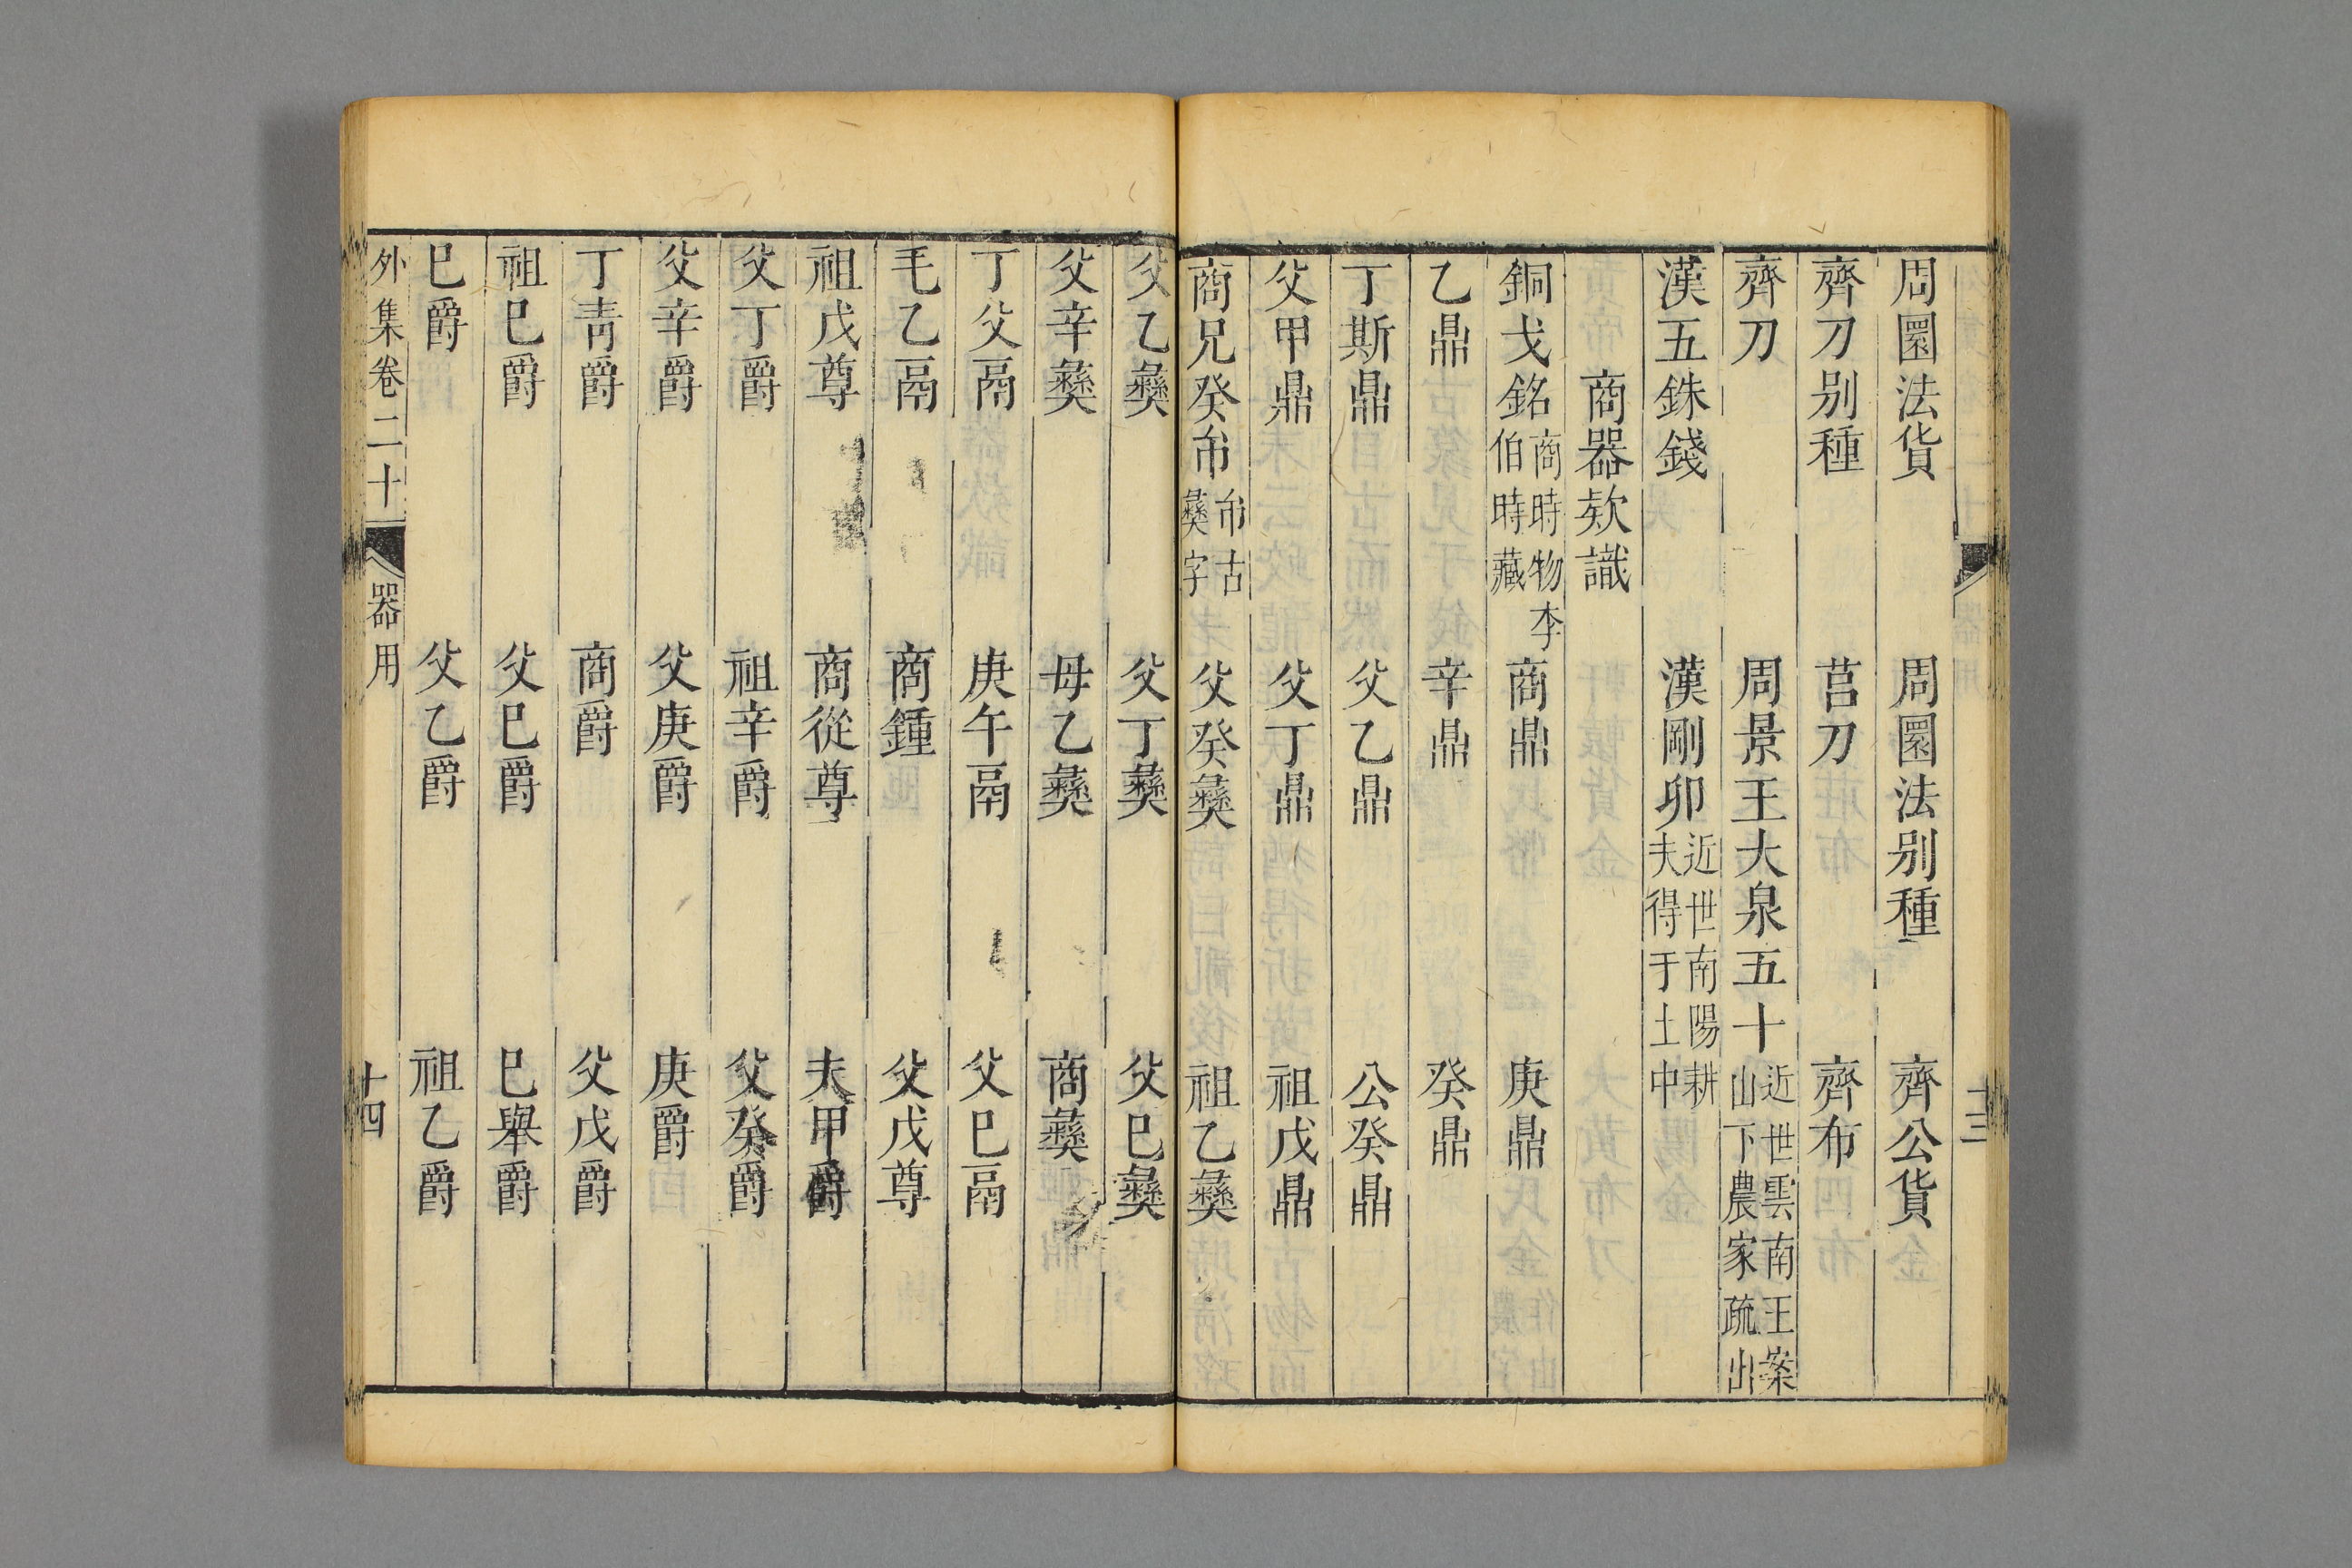 周圜法貨 周圜法别種 齊公貨
齊刀别種 莒刀 齊布
齊刀 周景王大泉五十近世雲南王案山下農家疏出
漢五銖錢 漢剛卯近世南陽耕夫得于土中
商器欵識
銅戈銘商時物李伯時藏 商鼎 庚鼎
乙鼎 辛鼎 癸鼎
丁斯鼎 父乙鼎 公癸鼎
父甲鼎 父丁鼎 祖戊鼎
商兄癸㣇㣇古彝字 父癸彝 祖乙彝
十三
父乙彝 父丁彝 父巳彝
父辛彝 母乙彝 商彝
丁父鬲 庚午鬲 父巳鬲
毛乙鬲 商鍾 父戊尊
祖戊尊 商從尊 夫甲爵
父丁爵 祖辛爵 父癸爵
父辛爵 父庚爵 庚爵
丁靑爵 商爵 父戊爵
祖巳爵 父巳爵 巳舉爵
巳爵 父乙爵 祖乙爵
外集卷二十 器用 十四